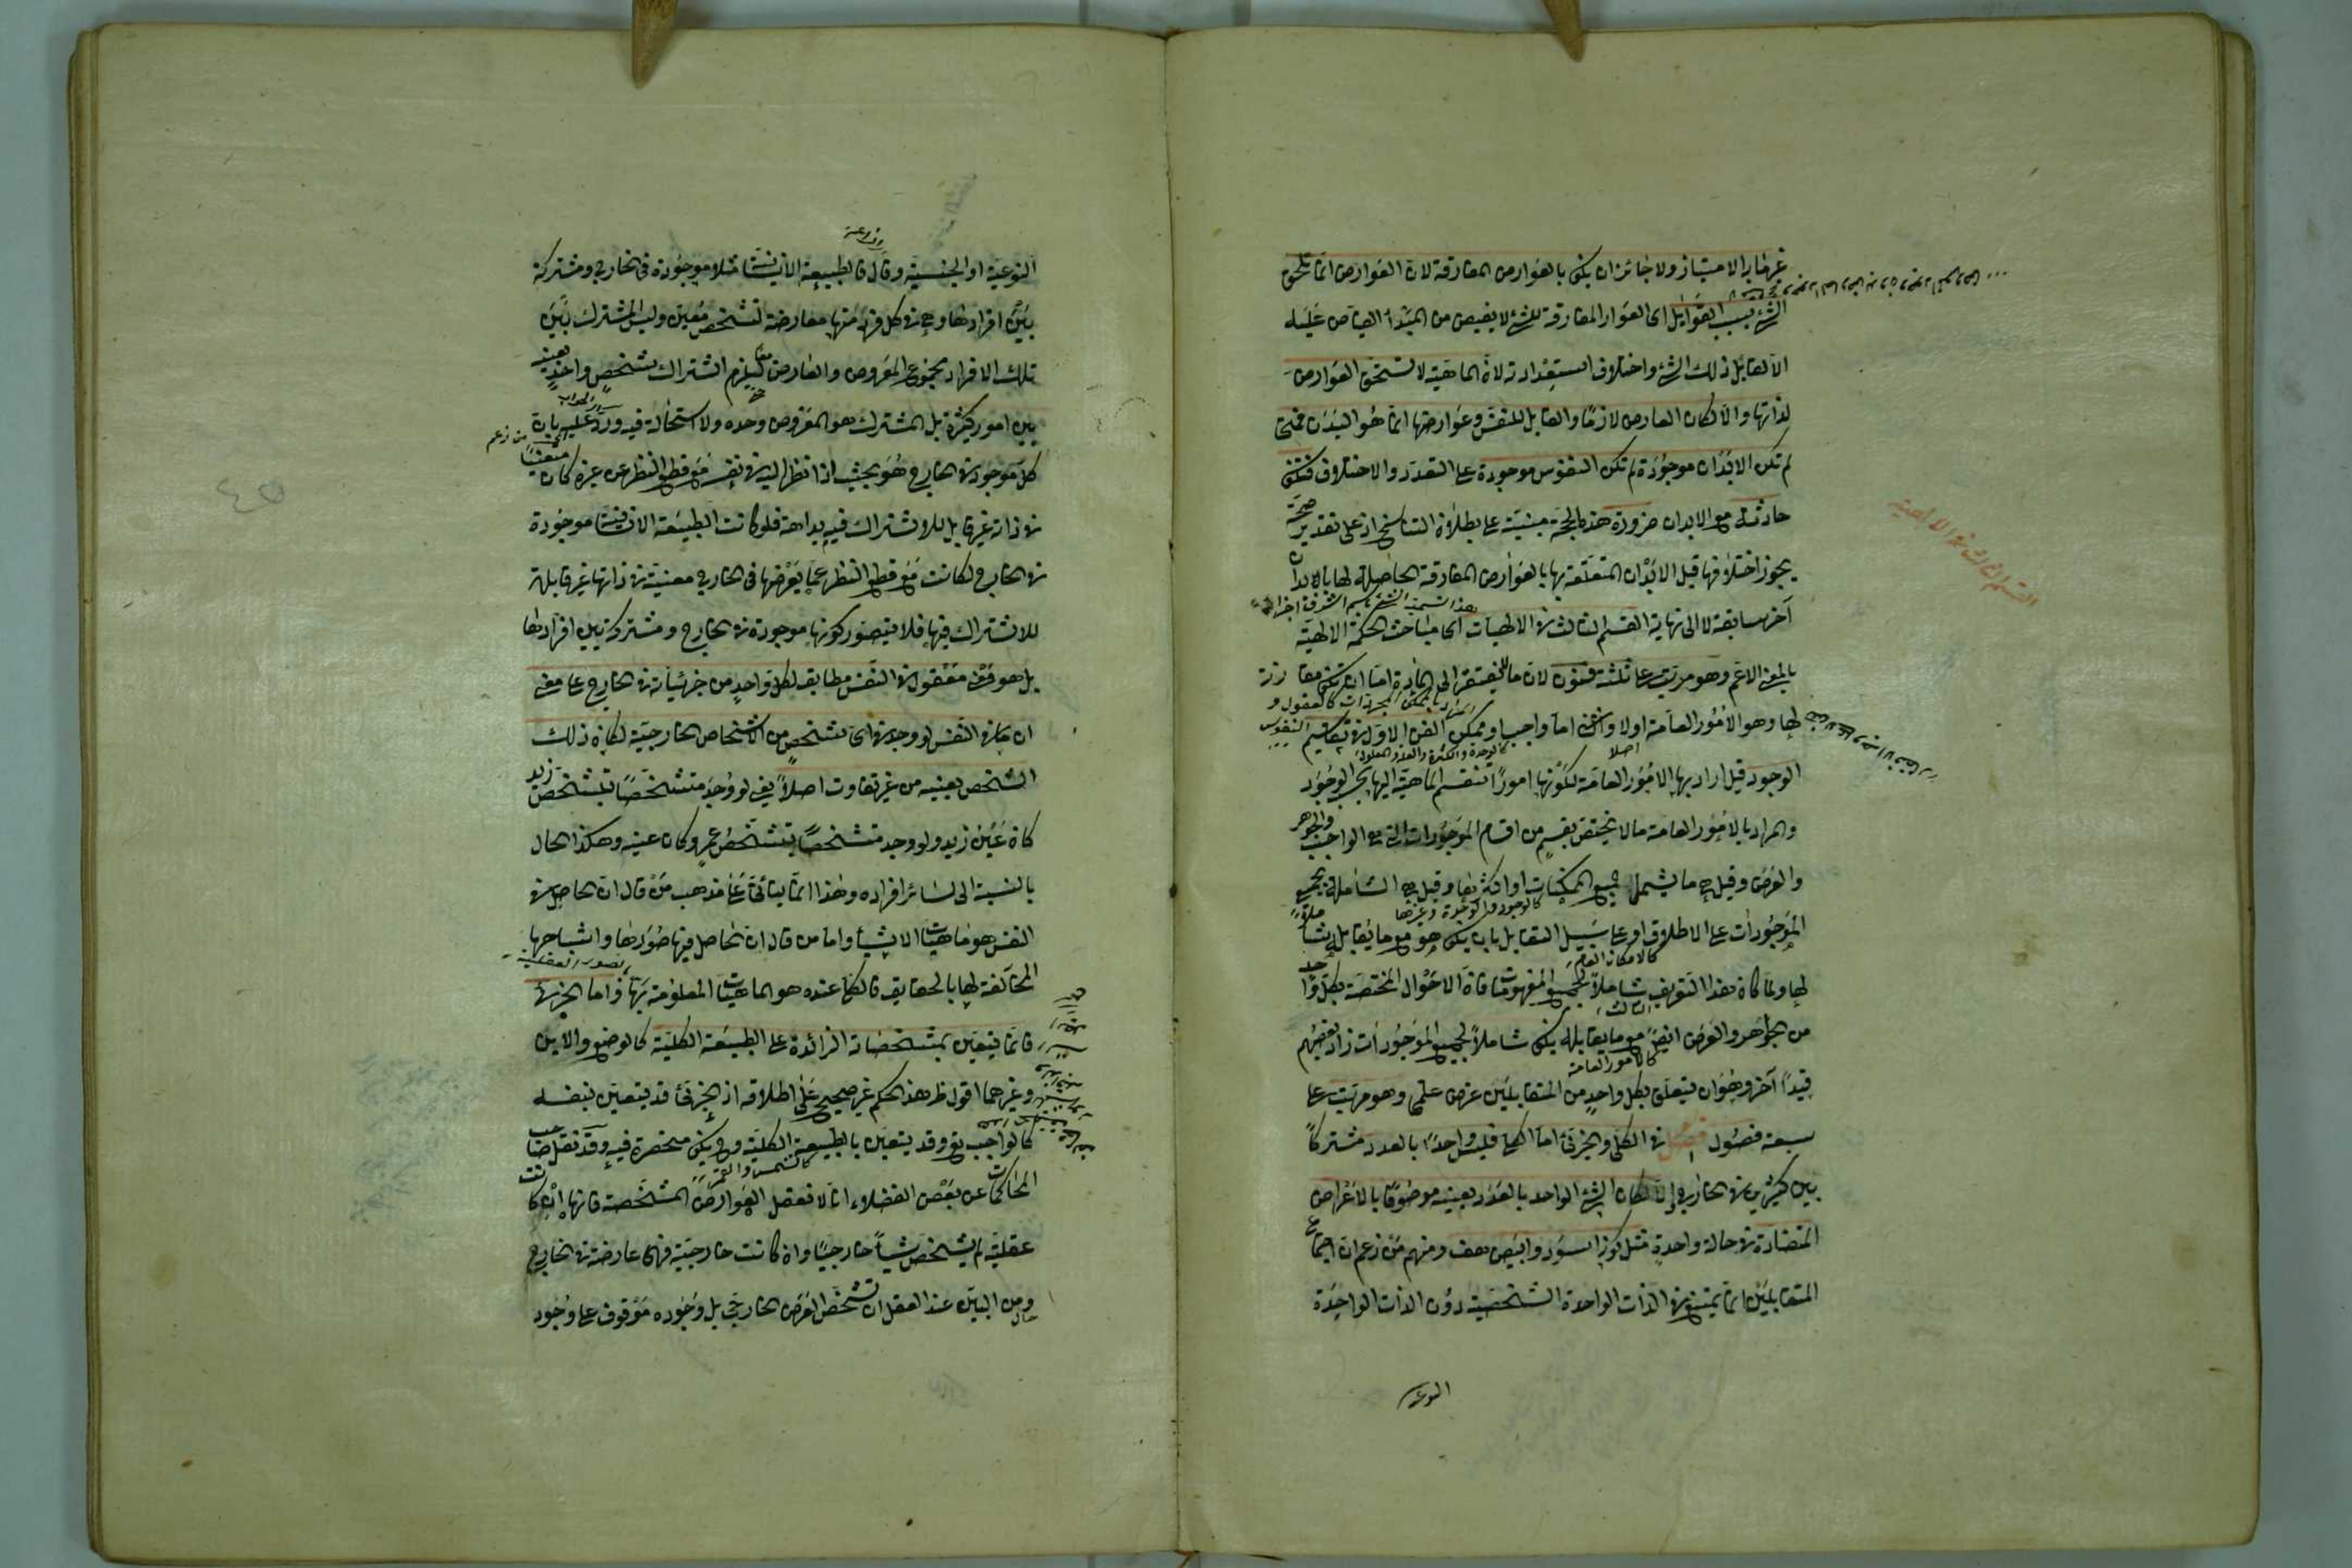 غير جائز الامتياز ولا جائز ان يكون بالعوارض المفارقة لان العوارض انما تلحق
الشئ بسبب القوابل اى العوارض المفارقة للشئ لا يفيض من المبدأ الفياض عليه
الا لقابل ذلك الشئ واختلاف استعداداته لان الماهية لا تستحق العوارض
لذاتها والا لكان العارض لازما والقابل للنفس وعوارضها انما هو البدن فمتى
لم تكن الابدان موجودة لم تكن النفوس موجودة على التعدد والاختلاف فتكون
حادثة مع الابدان ضرورة هذه الحجة مبنية على بطلان التناسخ اذ على تقدير صحته
يجوز اختلافها قبل الابدان المتعلقة بها بالعوارض المفارقة الحاصلة لها بالابدان
آخر سابقة لا الى نهاية القسم الثالث فى الالهيات اى مباحث الحكمة الالهية
القسم الثالث فى الالهية
بالمعنى الاعم وهو مرتب على ثلثة فنون لان ما لا يفتقر الى المادة اما ان تكون مقارنة
لها وهو الامور العامة اولا والثانى اما واجب او ممكن الفن الاول فى تقاسيم
كالوحدة والكثرة والعلة والمعلول
الوجود قيل اراد بها الامور العامة لكونها امورا تنقسم الماهية اليها بحسب الوجود
والمراد بالامور العامة ما لا يختص بقسم من اقسام الموجودات التى هى الواجب والجوهر
والعرض وقيل هى ما يشمل جميع الممكنات او اكثرها وقيل هى الشاملة لجميع
كالوجود والوحدة وغيرها
الموجودات على الاطلاق او على سبيل التقابل بان يكون هو مع ما يقابله شاملا
كالامكان العام
لها ولما كان هذا التعريف شاملا لجميع المفهومات فان الاحوال المختصة بكل واحد
من الجواهر والعرض ايضا مع ما يقابله يكون شاملا لجميع الموجودات زاد بعضهم
كالامور العامة
قيدا آخر وهو ان يتعلق بكل واحد من المتقابلين غرض علمى وهو مرتب على
سبعة فصول فصل فى الكلى والجزئى اما الكلى فليس واحدا بالعدد مشتركا
بين كثيرين فى الخارج والا لكان الشئ الواحد بالعدد بعينه موصوفا بالاعراض
المتضادة فى حالة واحدة مثل كونه اسود وابيض هف ومنهم من زعم ان اجتماع
المتقابلين انما يمتنع فى الذات الواحدة الشخصية دون الذات الواحدة
النوعية
النوعية او الجنسية وقال فالطبيعة الانسانية مثلا موجودة فى الخارج ومشتركة
بين افرادها وهى فى كل فرد منها معارضة لتشخص معين وليس المشترك بين
تلك الافراد مجموع المعروض والعارض معا ليلزم اشتراك شخص واحد بعينه
بين امور كثيرة بل المشترك هو المعروض وحده ولا استحالة فيه ورد عليه بان
كل موجود فى الخارج هو بحيث اذا نظر اليه فى نفسه مع قطع النظر عن غيره كان متعينا
فى ذاته غير قابل للاشتراك فيه بداهة فلو كانت الطبيعة الانسانية موجودة
فى الخارج لكانت مع قطع النظر عما يعرضها فى الخارج معينة فى ذاتها غير قابلة
للاشتراك فيها فلا يتصور كونها موجودة فى الخارج ومشتركة بين افرادها
بل هو معنى معقول فى النفس مطابق لكل واحد من جزئياته فى الخارج على معنى
ان ما فى النفس لو وجد فى اى شخص من الاشخاص الخارجية لكان ذلك
الشخص بعينه من غير تفاوت اصلا يعنى لو وجد متشخصا بتشخص زيد
كان عين زيد ولو وجد متشخصا بتشخص عمرو كان عينه وهكذا الحال
بالنسبة الى سائر افراده وهذا انما يتأتى على مذهب من قال ان الحاصل فى
النفس هو ماهيات الاشياء واما من قال ان الحاصل فيها صورها واشباحها
المخالفة لها بالحقايق فالكلى عنده هو الماهيات المعلومة بها واما الجزئى
فانما يتعين بمشخصاته الزائدة على الطبيعة الكلية كالوضع والاين
وغيرهما اقول ظ هذا الحكم غير صحيح على اطلاقه اذ الجزئى قد يتعين بنفسه
كالواجب تع وقد يتعين بالطبيعة الكلية وهى يكون منحصرة فيه وقد نقل صاحب
كالشمس والقمر
المحاكمات عن بعض الفضلاء انا لا نعقل العوارض المشخصة فانها ان كانت
عقلية لم يشخص شيئا خارجيا وان كانت خارجية فهى عارضة فى الخارج
ومن البين عند العقل ان تشخص العرض الخارجى بل وجوده موقوف على وجود